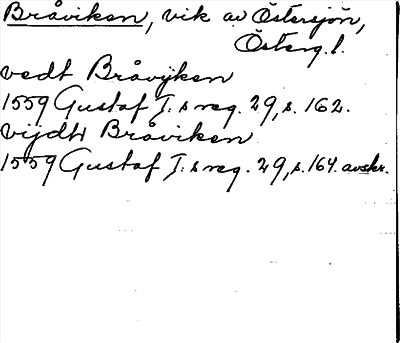 Bråviken, vik av Östersjön,
Österg. l.
vedt Bråvyken
1559 Gustaf I:s reg. 29, s. 162.
vijdh Bråviken
1559 Gustaf I:s reg. 29, s. 164. avskr.